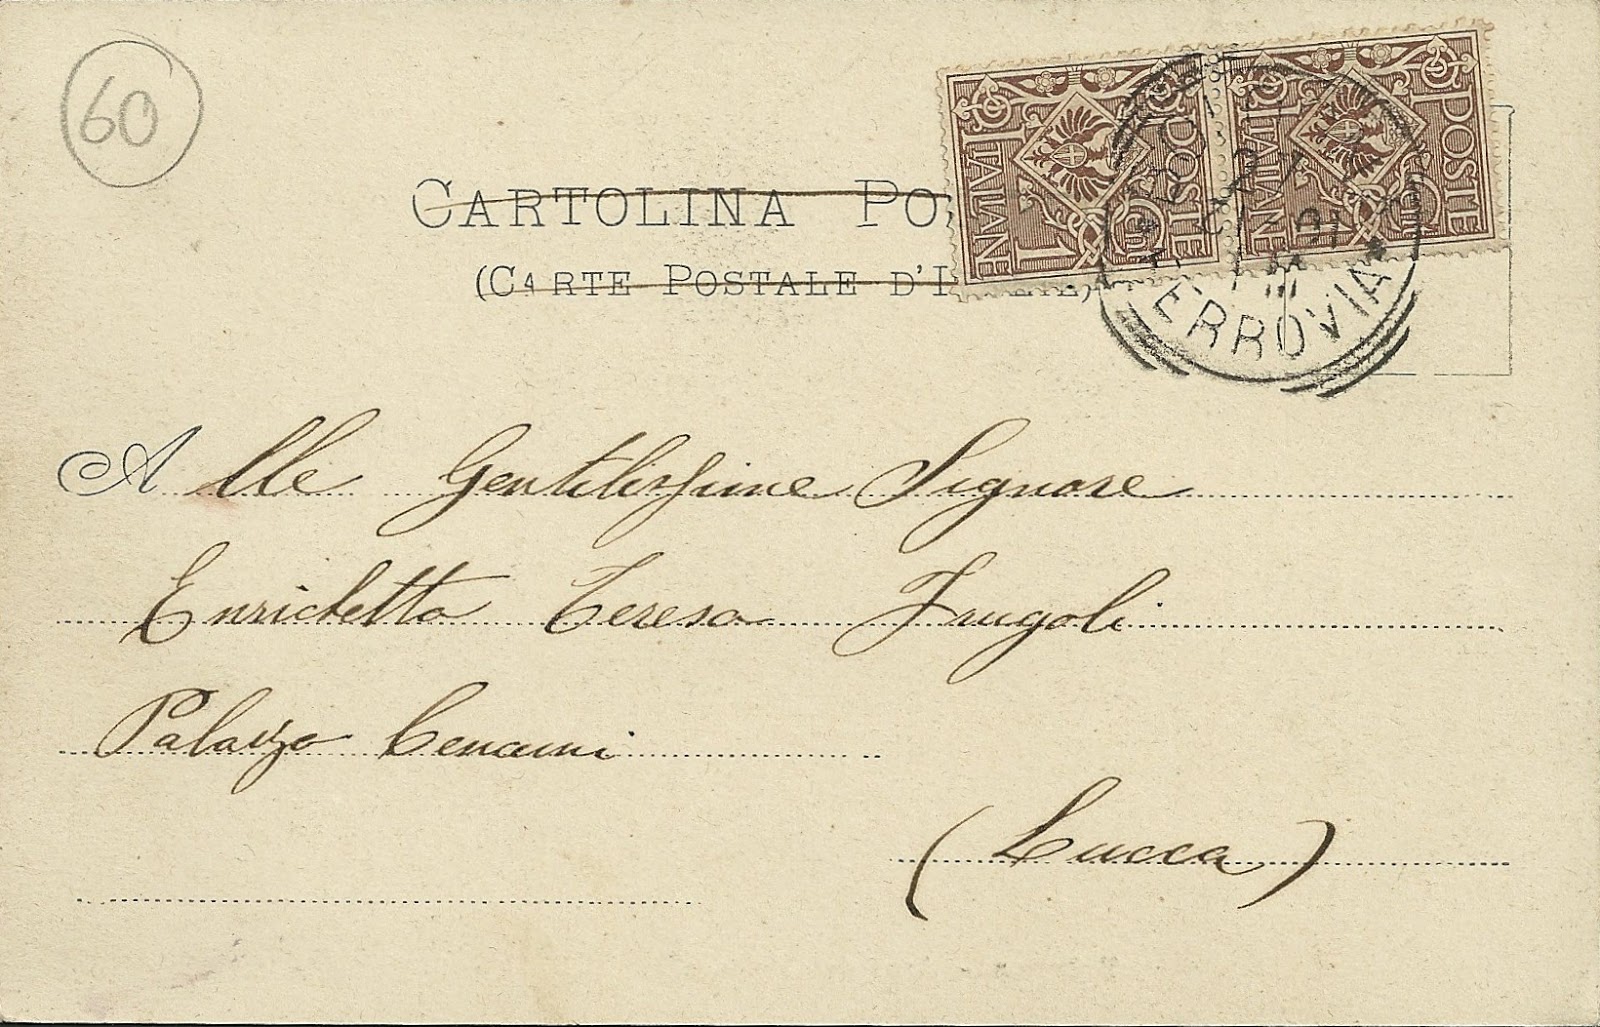 60
CARTOLINA PO
(CARTE POSTALE D'I
POSTE ITALIANE 1 Cent
POSTE ITALIANE 1 Cent
FERROVIA
Alle Gentilissime Signore
Enrichetta Teresa Frugoli
Palazzo Cenami
(Lucca)